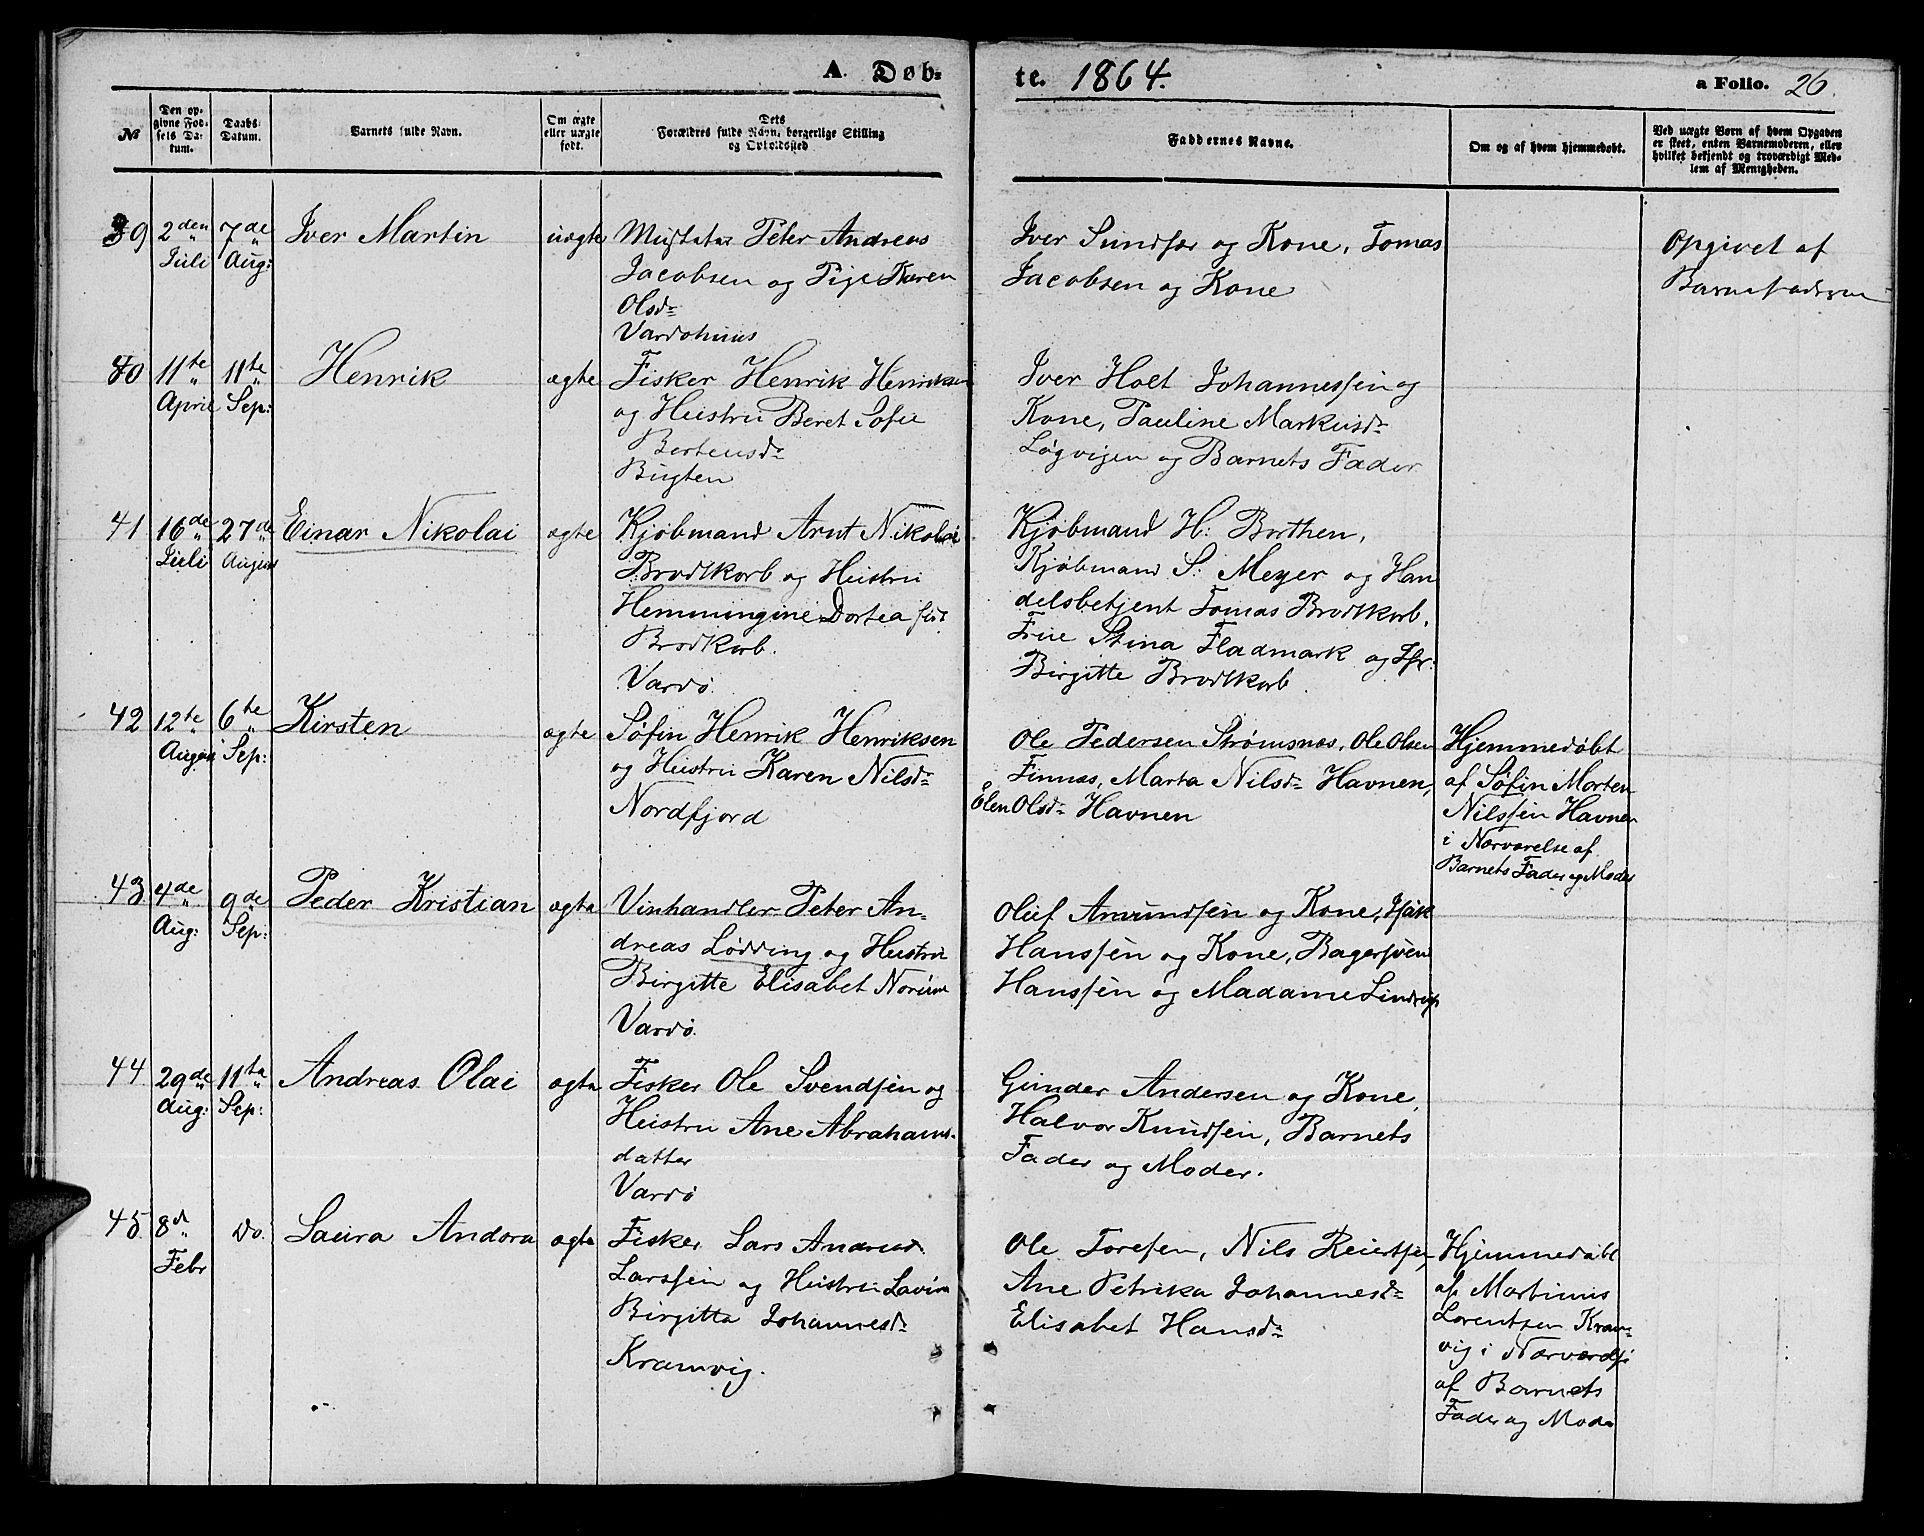 A. Døb-
te. 1864.
a Folio. 26.
№
Den op-
givne Fød-
sels Da-
tum.
Daabs-
Datum.
Barnets fulde Navn.
Om ægte
eller uægte
født.
Dets
Forældres fulde Navn, borgerlige Stilling
og Opholdssted
Faddernes Navne.
Om og af hvem hjemmedøbt.
Ved uægte Børn af hvem Opgaven
er skeet, enten Barnemoderen, eller
hvilket bekjendt og troværdigt Med-
lem af Menigheden.
39 2den Juli 7de Aug: Iver Martin uægte
Peter Andreas
Jacobsen og Pige Karen
Olsdr
Vardøhuus
Iver Sundfær og Kone, Tomas
Jacobsen og Kone
Opgivet af
Barnefaderen
40 11te April 11te Sep: Henrik ægte
Fisker Henrik Henriksen
og Hustru Beret Sofie
Bertensdr
Bugten
Iver Holt Johannessen og
Kone, Pauline Markusdr
Løgvigen og Barnets Fader
41 16de Juli 27de August Einar Nikolai ægte
Kjøbmand Arnt Nikolai
Brodtkorb og Hustru
Hemmingine Dortea født
Brodkorb.
Vardø.
Kjøbmand H: Brothen,
Kjøbmand S: Meyer og Han
delsbetjent Tomas Brodtkorb,
Frue Stina Fladmark og Jfr:
Birgitte Brodtkorb.
42 12te August 6te Sep: Kirsten ægte
Søfin Henrik Henriksen
og Hustru Karen Nilsdr
Nordfjord
Ole Pedersen Strømsnæs, Ole Olsen
Finnæs, Marta Nilsdr Havnen,
Elen Olsdr Havnen
Hjemmedøbt
af Søfin Morten
Nilssen Havnen
i Nærværelse af
Barnets Fader og Moder
43 4de Aug: 9de Sep: Peder Kristian ægte
Vinhandler Peter An-
dreas Lødding og Hustru
Birgitte Elisabet Norum
Vardø.
Oluf Amundsen og Kone, Isak
Hanssen og Kone, Bagersven
Hanssen og Madame
44 29de Aug: 11te Sep: Andreas Olai ægte
Fisker Ole Svendsen og
Hustru Ane Abrahams-
datter
Vardø
Gunder Andersen og Kone,
Halvor Knudsen, Barnets
Fader og Moder.
45. 8d Febr Do. Laura Andora ægte
Fisker Lars Andreas
Larssen og Hustru Lavina
Birgitta Johannesdr
Kramvig.
Ole Toresen, Nils Reiertsen,
Ane Petrika Johannesdr
Elisabet Hansdr
Hjemmedøbt
af Martinus
Lorentsen Kram-
vig i
af Barnets
Fader og Moder